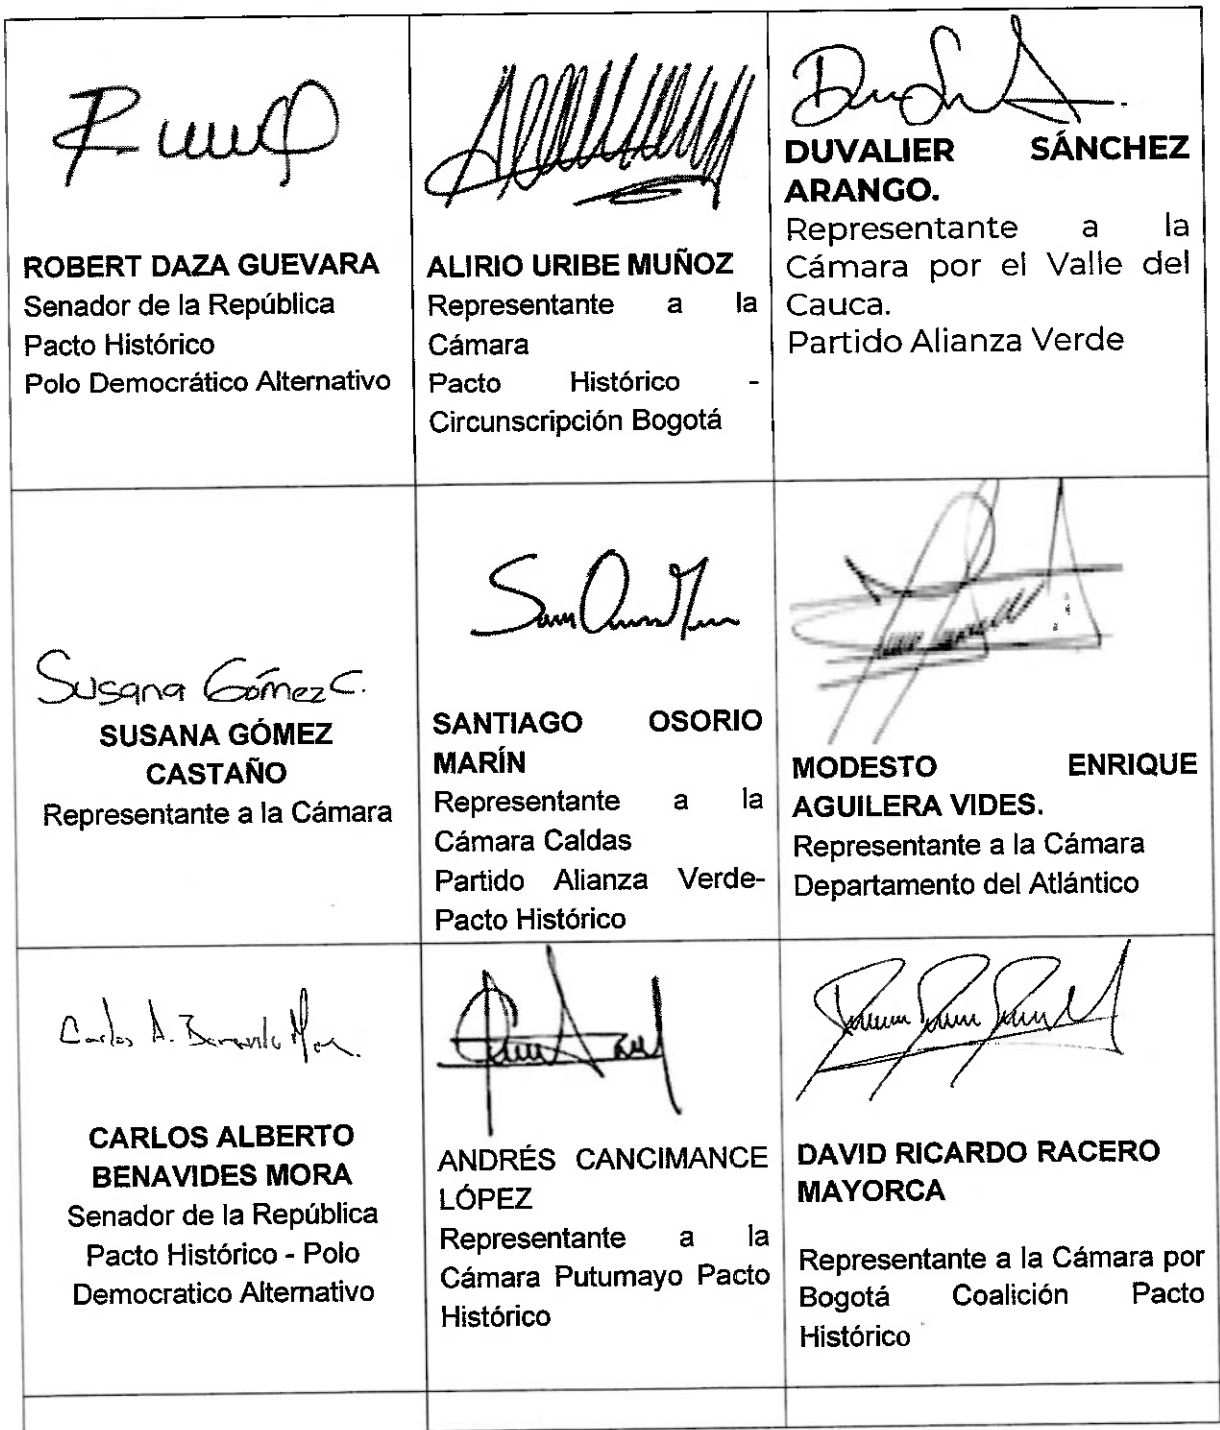 ROBERT DAZA GUEVARA
Senador de la República
Pacto Histórico
Polo Democrático Alternativo
ALIRIO URIBE MUÑOZ
Representante a la
Cámara
Pacto Histórico -
Circunscripción Bogotá
DUVALIER SÁNCHEZ
ARANGO.
Representante a la
Cámara por el Valle del
Cauca.
Partido Alianza Verde
Susana Gómez C.
SUSANA GÓMEZ
CASTAÑO
Representante a la Cámara
SANTIAGO OSORIO
MARÍN
Representante a la
Cámara Caldas
Partido Alianza Verde-
Pacto Histórico
MODESTO ENRIQUE
AGUILERA VIDES.
Representante a la Cámara
Departamento del Atlántico
Carlos A.
CARLOS ALBERTO
BENAVIDES MORA
Senador de la República
Pacto Histórico - Polo
Democratico Alternativo
ANDRÉS CANCIMANCE
LÓPEZ
Representante a la
Cámara Putumayo Pacto
Histórico
DAVID RICARDO RACERO
MAYORCA
Representante a la Cámara por
Bogotá Coalición Pacto
Histórico